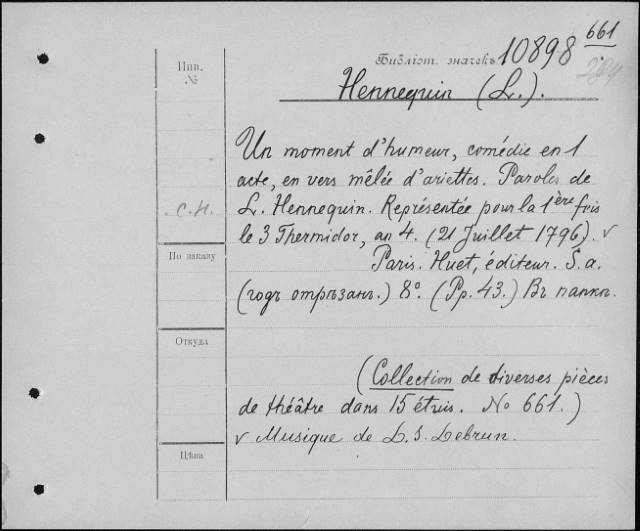 661
Библіот. значекъ 10898
284
Инв.
№
Hennequin (L.).
Un moment d'humeur, comédie en 1
acte, en vers mêlée d'ariettes. Paroles de
C. H.
L. Hennequin. Représentée pour la 1ère fois
le 3 Thermidor, an 4. (21 Juillet 1796). v
По заказу
Paris. Huet, éditeur. S. a.
(годъ отрѣзанъ.) 8°. (Pp. 43.) Въ папкѣ.
Откуда
(Collection de diverses pièces
de théâtre dans 15 étuis. No 661.)
v Musique de L. S. Lebrun.
Цѣна